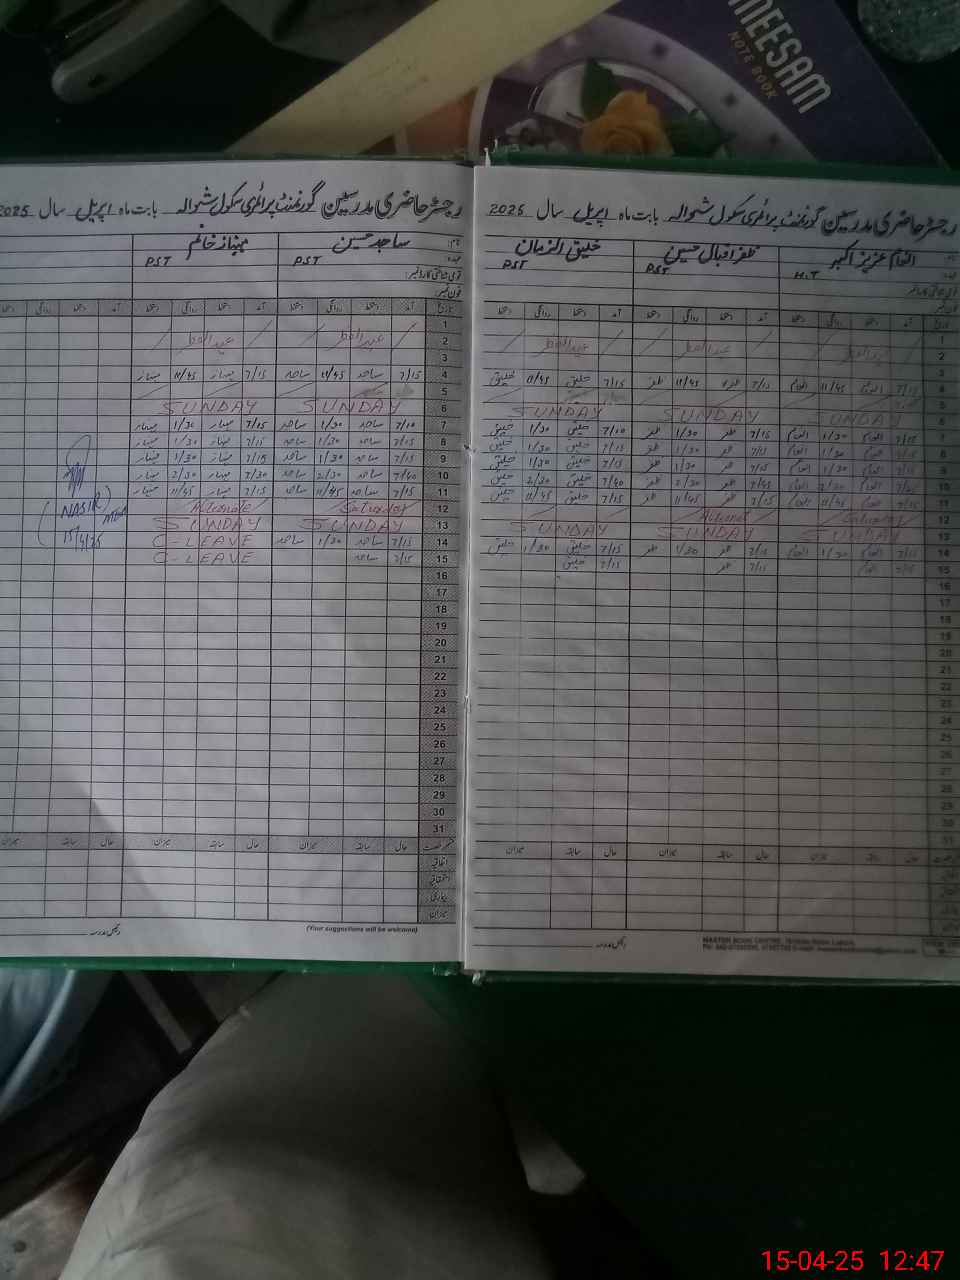 MEESAM
NOTE BOOK
رجسٹر حاضری مدرسین گورنمنٹ پرائمری سکول شوالہ بابت ماہ اپریل سال 2025
نام: انعام عزیز اکبر ظفر اقبال حسین خلیق الزمان
H.T PST PST
تاریخ آمد دستخط روانگی دستخط آمد دستخط روانگی دستخط آمد دستخط روانگی دستخط
1
2 عیدالفطر عیدالفطر عیدالفطر
3
4 7/15 انعام 11/45 انعام 7/15 ظفر 11/45 ظفر 7/15 خلیق 11/45 خلیق
5
6 SUNDAY SUNDAY SUNDAY
7 7/15 انعام 1/30 انعام 7/15 ظفر 1/30 ظفر 7/10 خلیق 1/30 خلیق
8 7/15 انعام 1/30 انعام 7/15 ظفر 1/30 ظفر 7/15 خلیق 1/30 خلیق
9 7/15 انعام 1/30 انعام 7/15 ظفر 1/30 ظفر 7/15 خلیق 1/30 خلیق
10 انعام 2/30 انعام 7/45 ظفر 2/30 ظفر 7/40 خلیق 2/30 خلیق
11 7/15 انعام 11/45 انعام 7/15 ظفر 11/45 ظفر 7/15 خلیق 11/45 خلیق
12 Saturday
13 SUNDAY SUNDAY SUNDAY
14 7/15 انعام 1/30 انعام 7/15 ظفر 1/30 ظفر 7/15 خلیق 1/30 خلیق
15 7/15 انعام 7/15 ظفر 7/15 خلیق
16
17
18
19
20
21
22
23
24
25
26
27
28
29
30
31
حال سابقہ میزان حال سابقہ میزان حال سابقہ میزان
دستخط صدر مدرس
MASTER BOOK CENTRE
رجسٹر حاضری مدرسین گورنمنٹ پرائمری سکول شوالہ بابت ماہ اپریل سال 2025
نام: ساجد حسین مہناز خانم
عہدہ: PST PST
قومی شناختی کارڈ نمبر:
فون نمبر:
تاریخ آمد دستخط روانگی دستخط آمد دستخط روانگی دستخط آمد دستخط روانگی دستخط
1
2 عیدالفطر عیدالفطر
3
4 7/15 ساجد 11/45 ساجد 7/15 مہناز 11/45 مہناز
5
6 SUNDAY SUNDAY
7 7/10 ساجد 1/30 ساجد 7/15 مہناز 1/30 مہناز
8 7/15 ساجد 1/30 ساجد 7/15 مہناز 1/30 مہناز
9 7/15 ساجد 1/30 ساجد 7/15 مہناز 1/30 مہناز
10 7/40 ساجد 2/30 ساجد 7/30 مہناز 2/30 مہناز
11 7/15 ساجد 11/45 ساجد 7/15 مہناز 11/45 مہناز
12 Alternate Saturday
13 SUNDAY SUNDAY
14 7/15 ساجد 1/30 ساجد C-LEAVE
15 7/15 ساجد C-LEAVE
16
17
18
19
20
21
22
23
24
25
26
27
28
29
30
31
(NASIR)
15/4/25
حال سابقہ میزان حال سابقہ میزان حال سابقہ میزان
اتفاقیہ
استحقاقیہ
بیماری
میزان
(Your suggestions will be welcome)
15-04-25 12:47